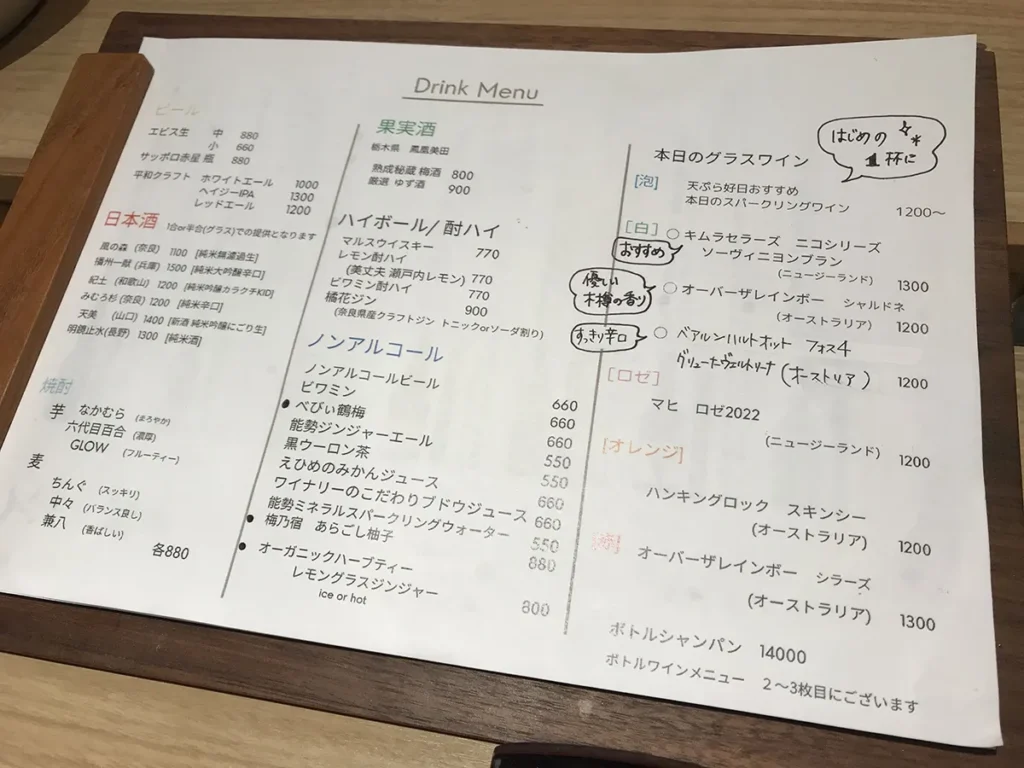 Drink Menu
ビール
エビス生 中 880
小 660
サッポロ赤星 瓶 880
平和クラフト ホワイトエール 1000
ヘイジーIPA 1300
レッドエール 1200
日本酒 1合or半合(グラス)での提供となります
風の森 (奈良) 1100 [純米無濾過生]
播州一献 (兵庫) 1500 [純米大吟醸辛口]
紀土 (和歌山) 1200 [純米吟醸カラクチKID]
みむろ杉 (奈良) 1200 [純米辛口]
天美 (山口) 1400 [新酒 純米吟醸にごり生]
明鏡止水(長野) 1300 [純米酒]
焼酎
芋 なかむら (まろやか)
六代目百合 (濃厚)
GLOW (フルーティー)
麦
ちんぐ (スッキリ)
中々 (バランス良し)
兼八 (香ばしい)
各880
果実酒
栃木県 鳳凰美田
熟成秘蔵 梅酒 800
厳選 ゆず酒 900
ハイボール/ 酎ハイ
マルスウイスキー 770
レモン酎ハイ
(美丈夫 瀬戸内レモン) 770
ビワミン酎ハイ 770
橘花ジン 900
(奈良県産クラフトジン トニックorソーダ割り)
ノンアルコール
ノンアルコールビール 660
ビワミン 660
● べびぃ鶴梅 660
能勢ジンジャーエール 550
黒ウーロン茶 550
えひめのみかんジュース 660
ワイナリーのこだわりブドウジュース 660
能勢ミネラルスパークリングウォーター 550
● 梅乃宿 あらごし柚子 880
● オーガニックハーブティー
レモングラスジンジャー 800
ice or hot
本日のグラスワイン
はじめの
1杯に
[泡] 天ぷら好日おすすめ
本日のスパークリングワイン 1200〜
[白] ○ キムラセラーズ ニコシリーズ
おすすめ ソーヴィニヨンブラン
(ニュージーランド) 1300
優しい
木樽の香り
○ オーバーザレインボー シャルドネ
(オーストラリア) 1200
すっきり辛口 ○ ベアルンハルトオット フォス4
グリューナーヴェルトリーナ (オーストリア) 1200
[ロゼ]
マヒ ロゼ2022
(ニュージーランド) 1200
[オレンジ]
ハンキングロック スキンシー
(オーストラリア) 1200
[赤]
オーバーザレインボー シラーズ
(オーストラリア) 1300
ボトルシャンパン 14000
ボトルワインメニュー 2〜3枚目にございます